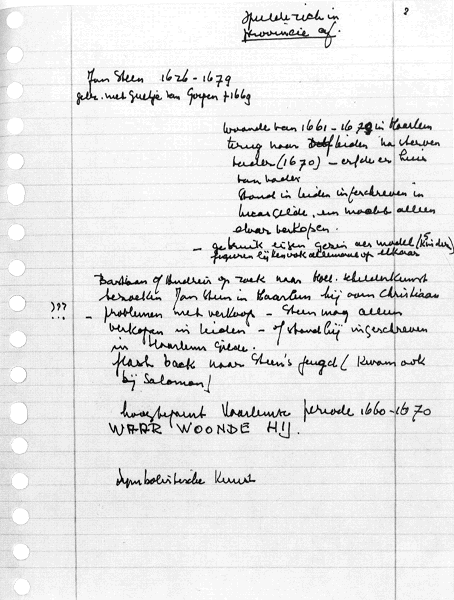 2
speelde zich in
provincie af.
Jan Steen 1626 - 1679
getr. met Grietje van Goyen † 1669
woonde van 1661 - 1670 in Haarlem
terug naar Leiden na sterven
vader (1670) - erfde er huis
van vader
Stond in Leiden ingeschreven in
Lucas Gilde, en mocht alleen
daar verkopen.
- gebruikt eigen gezin als model (5 kinder)
figuren lijken ook allemaal op elkaar
Bastiaan of Andries op zoek naar Holl. schilderkunst
bezoeken Jan Steen in Haarlem bij oom Christiaan
??? - problemen met verkoop - Steen mag alleen
verkopen in Leiden - of stond hij ingeschreven
in Haarlems Gilde.
flash back naar Steen's jeugd (kwam ook
bij Salomon)
hoogtepunt Haarlemse periode 1660-1670
WAAR WOONDE HIJ.
symbolistische kunst